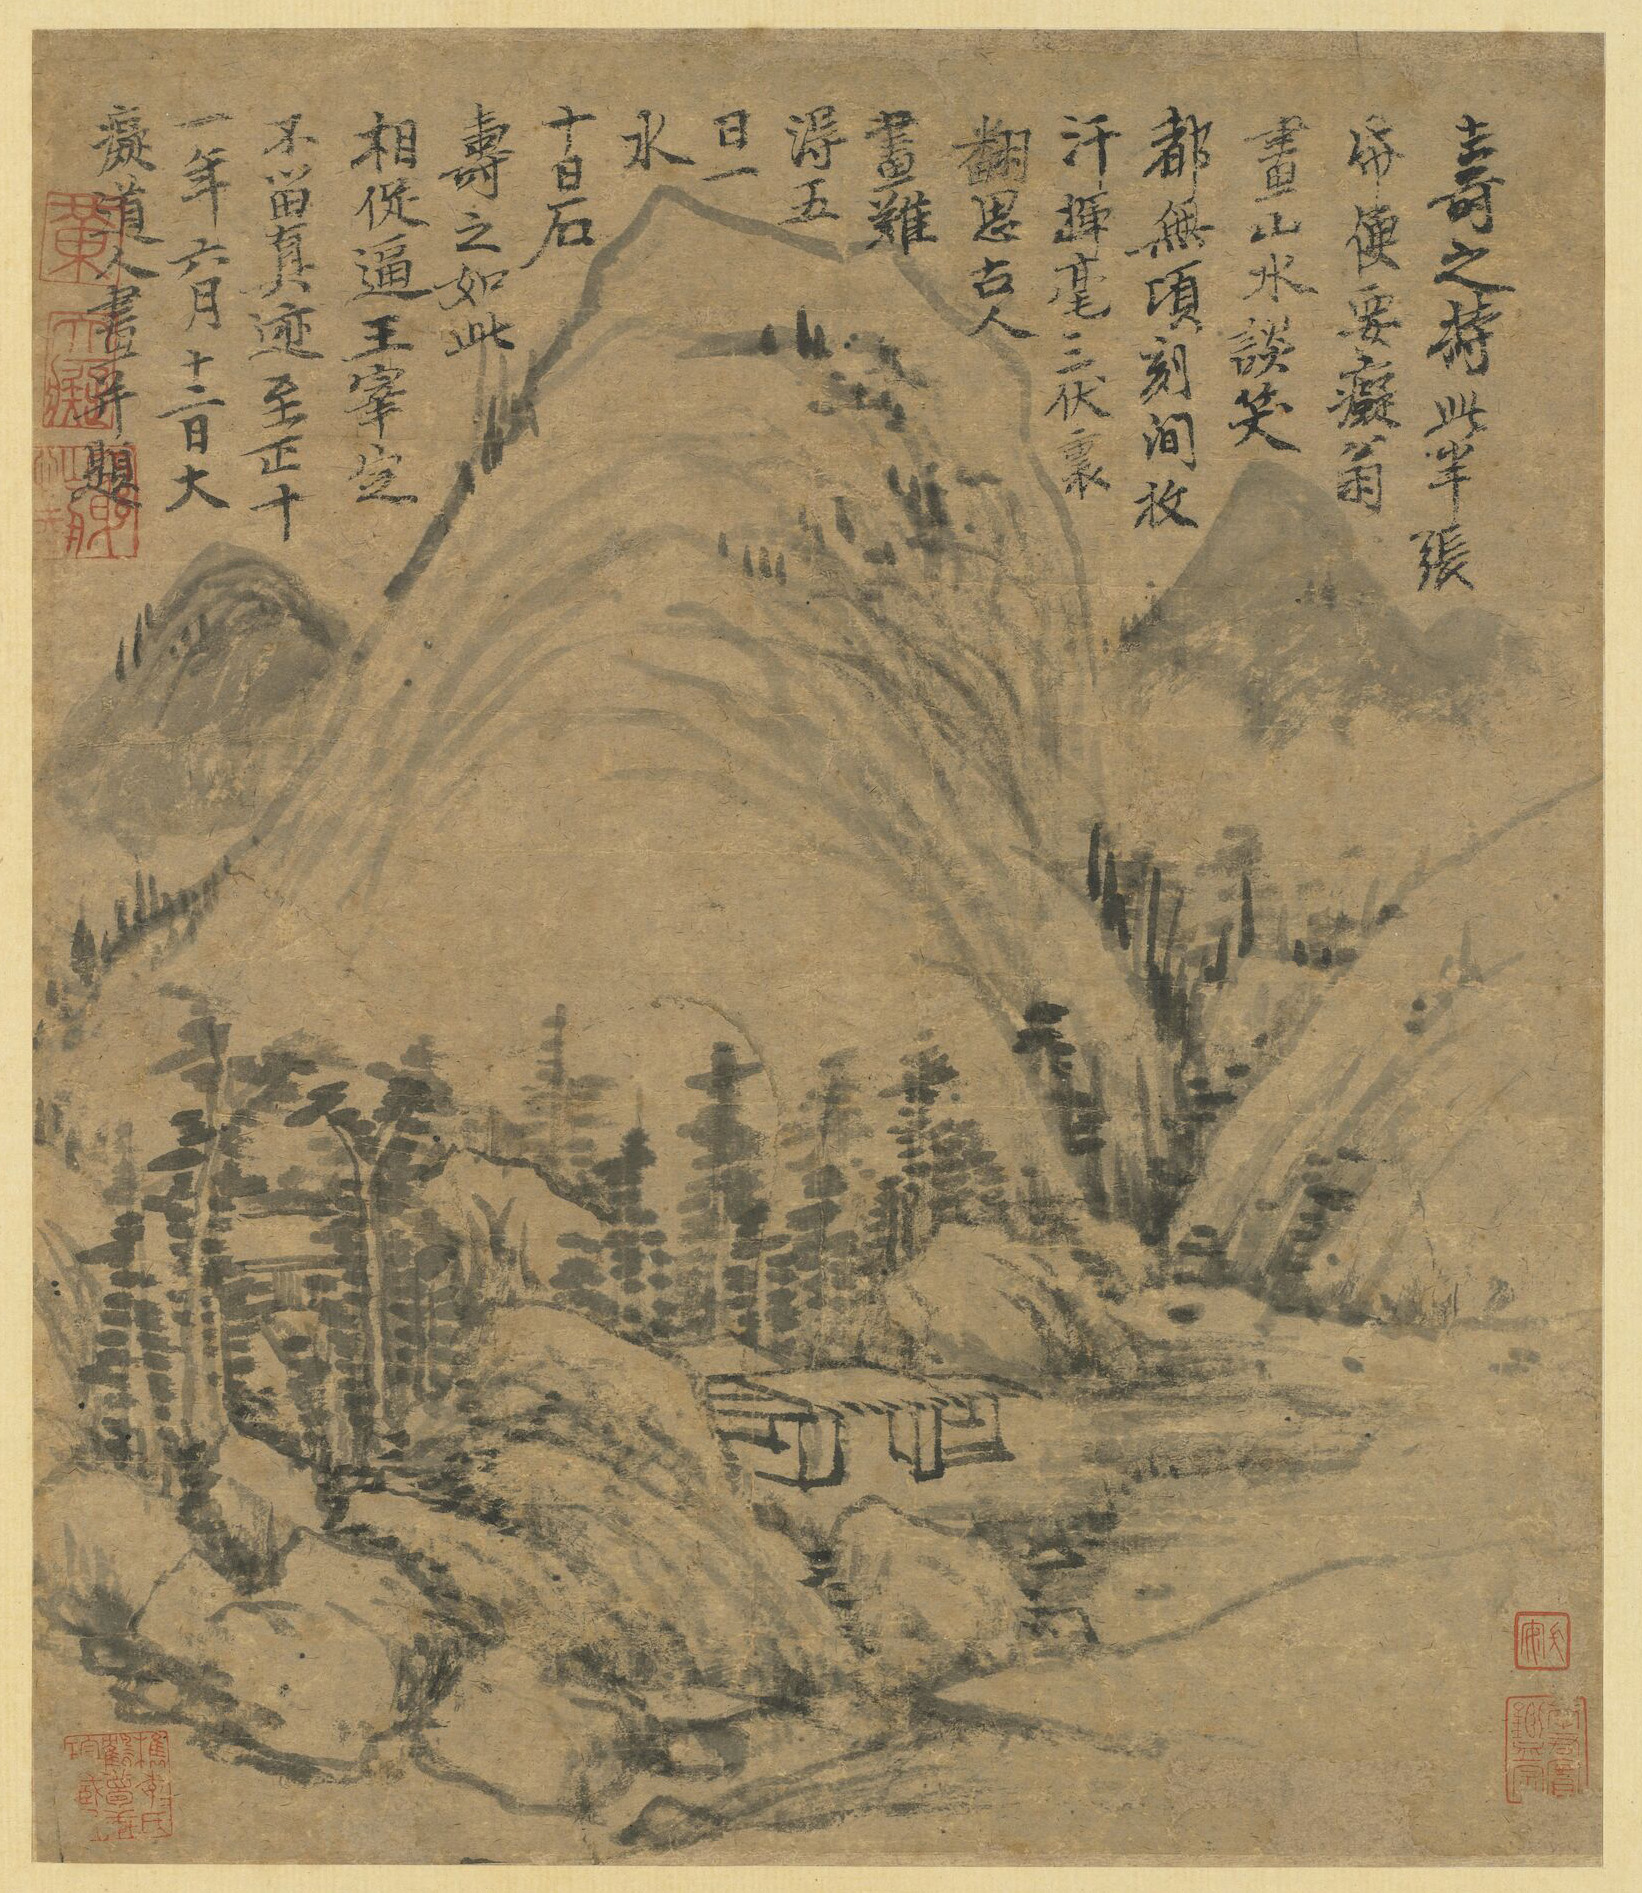 壽之持此半張
紙便要癡翁
畫山水談笑
都無頃刻間放
汗揮毫三伏裏
翻思古人
畫難
得五
日一
水
十日石
壽之如此
相從逼王宰定
不留真迹至正十
一年六月十二日大
癡道人畫并題